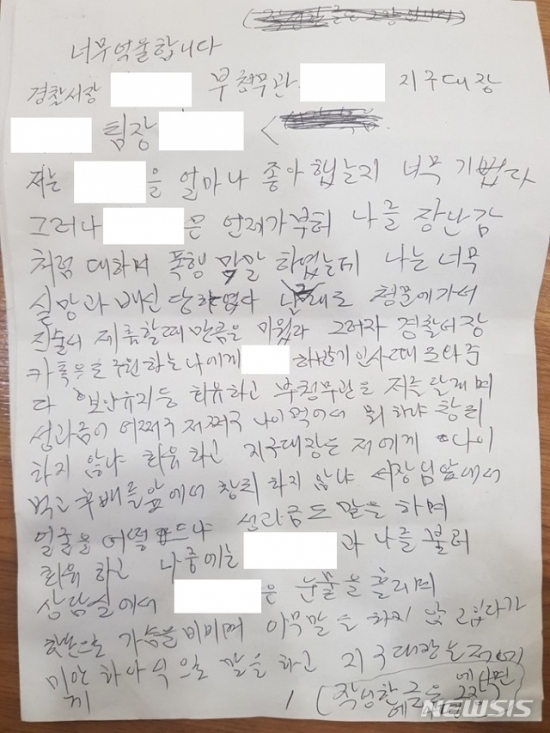 너무 억울합니다
경찰서장 부청문관 지구대장
팀장
저는 을 얼마나 좋아 했는지 너무 기뻤다
그러나 은 언제가부터 나를 장난감
처럼 대하며 폭행 막말 하였는데 나는 너무
실망과 배신 당하였다 그래도 청문에가서
진술서 제출할때 만큼은 미웠다 그러자 경찰서장
나에게 하반기 인사때 도와주
다 보안유지등 회유하고 부청문관은 저를 달래며
성과금이 어쩌구 저쩌구 나이먹어서 뭐 하냐 창피
하지 않냐 회유 하고 지구대장은 저에게 나이
먹고 후배들앞에서 창피 하지 않냐 서장님앞에서
얼굴을 어떻 드냐 성과금도 말을 하며
회유 하고 나중에는 과 나를 불러
상담실에서 은 눈물을 흘리며
핫손으로 가슴을 비비며 아무말을 하지 않 그랬다가
미안 하아 식으로 말을 하고 지구대장은 저에게
작성한 글을